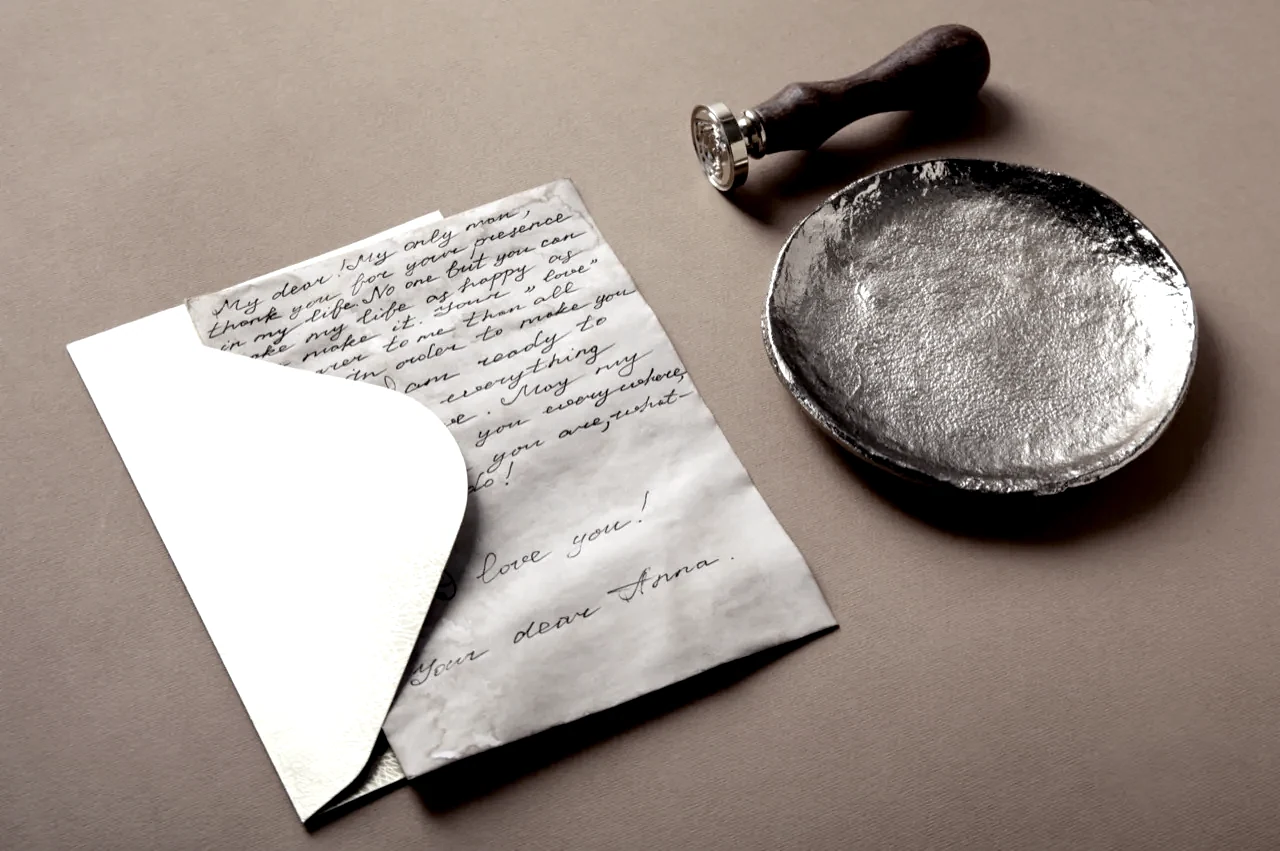 My dear! My only man,
thank you for your presence
in my life. No one but you can
make my life as happy as
make it. Your „ love"
to me than all
in order to make you
I am ready to
everything
. May my
you everywhere,
you are, what-
do!
I love you!
Your dear Anna.